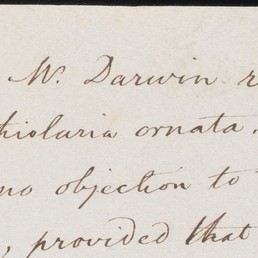 Mr. Darwin r
hiolaria ornata.
no objection to
, provided that